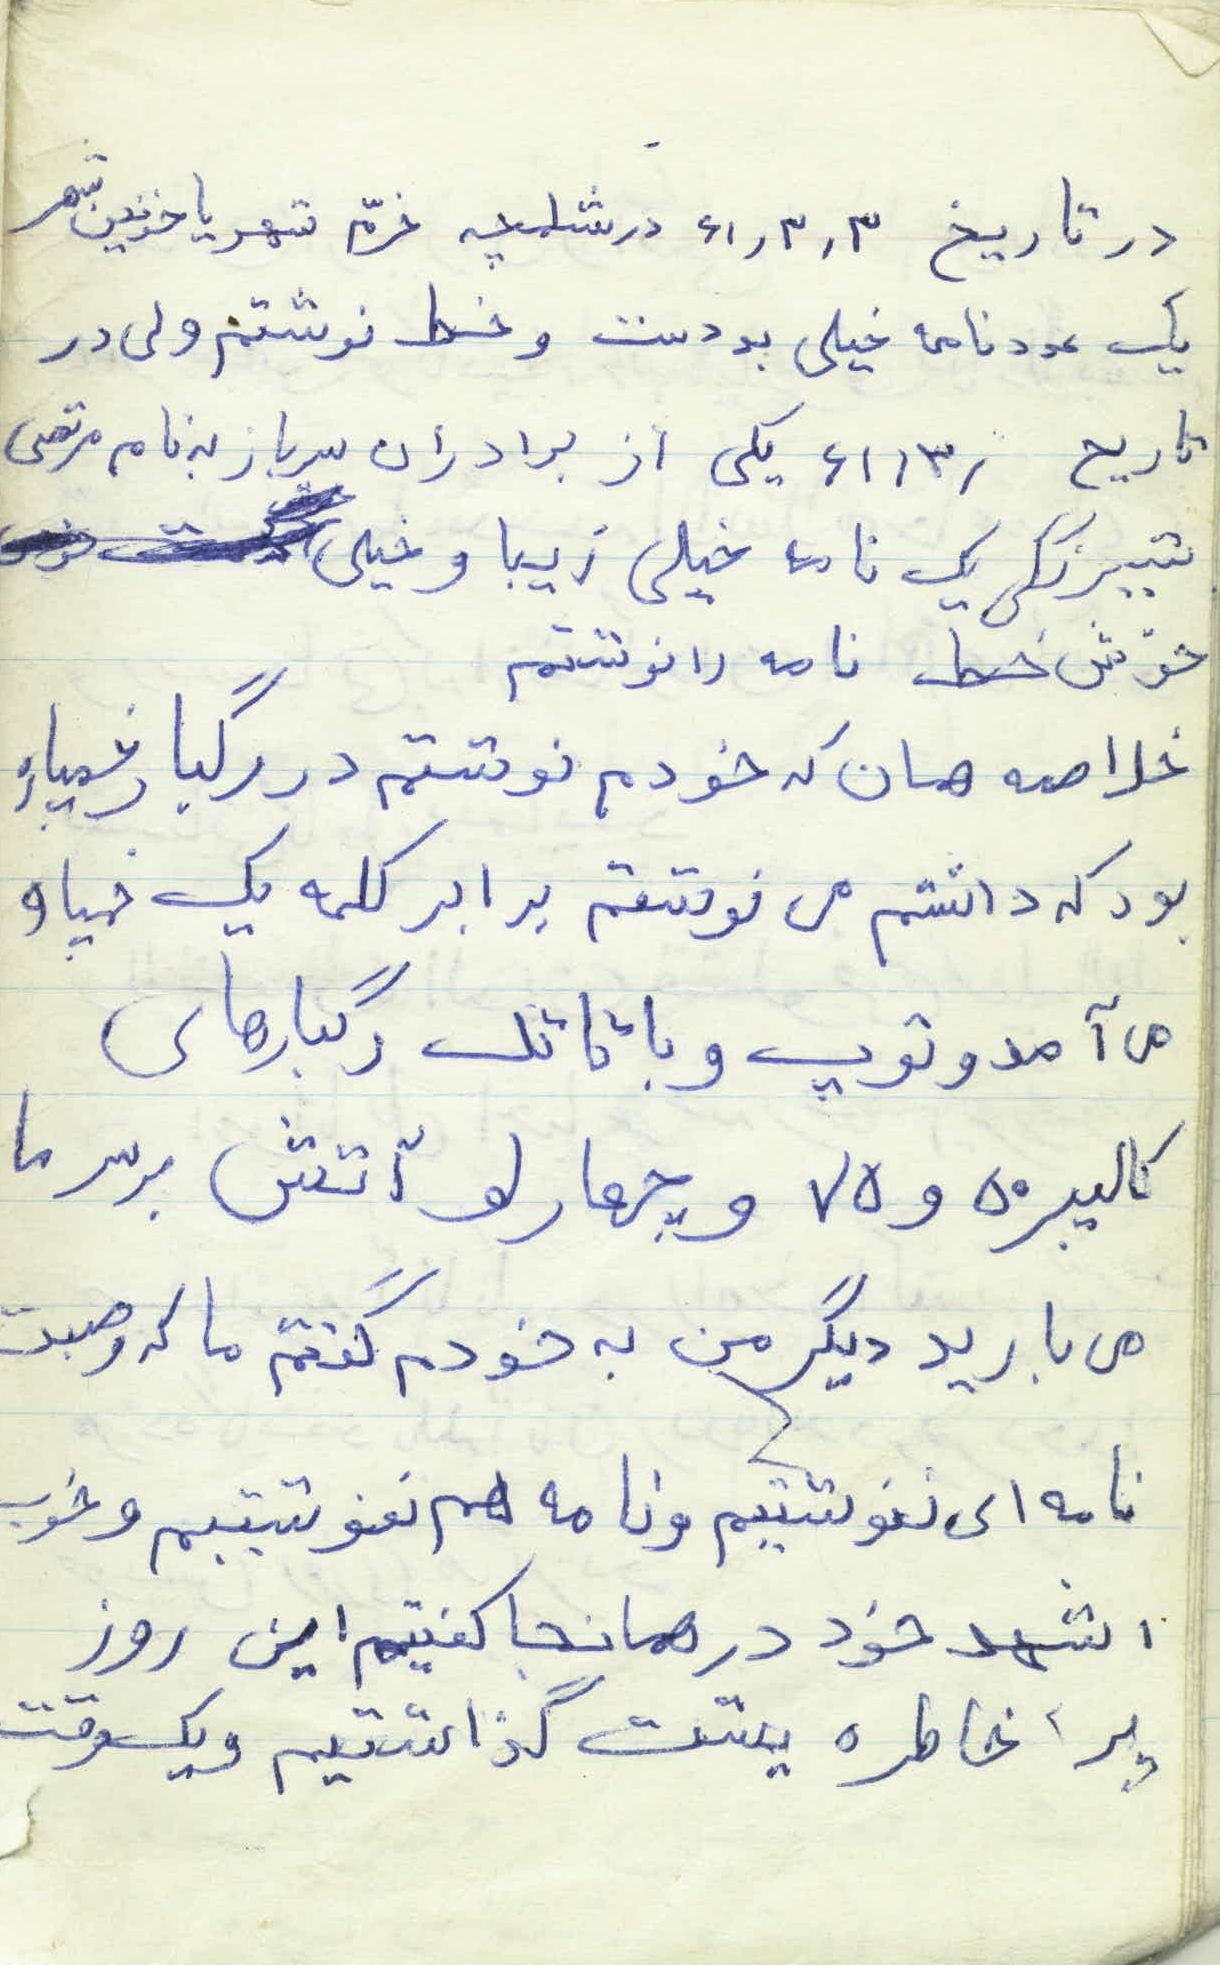 در تاریخ ۶۱٫۳٫۳ در شلمچه خرّم شهر یا خونین شهر
یک عدد نامه خیلی بد دست و خط نوشتم ولی در
تاریخ ۶۱٫۳٫ یکی از برادران سرباز به نام مرتضی
یک نامه خیلی زیبا و خیلی
خوش خط نامه را نوشتم
خلاصه همان که خودم نوشتم در رگبار خمپاره
بود که داشتم می نوشتم برابر کلمه یک خمپاره
می آمد و توپ و با تانک رگبارهای
کالیبر ۵۰ و ۷۵ و چهار لول آتش بر سر ما
می بارید دیگر من به خودم گفتم ما که وصیت
نامه ای ننوشتیم و نامه هم ننوشتیم و خوب
اشهد خود در همانجا گفتیم این روز
پر خاطره پشت گذاشتیم و یک وقت